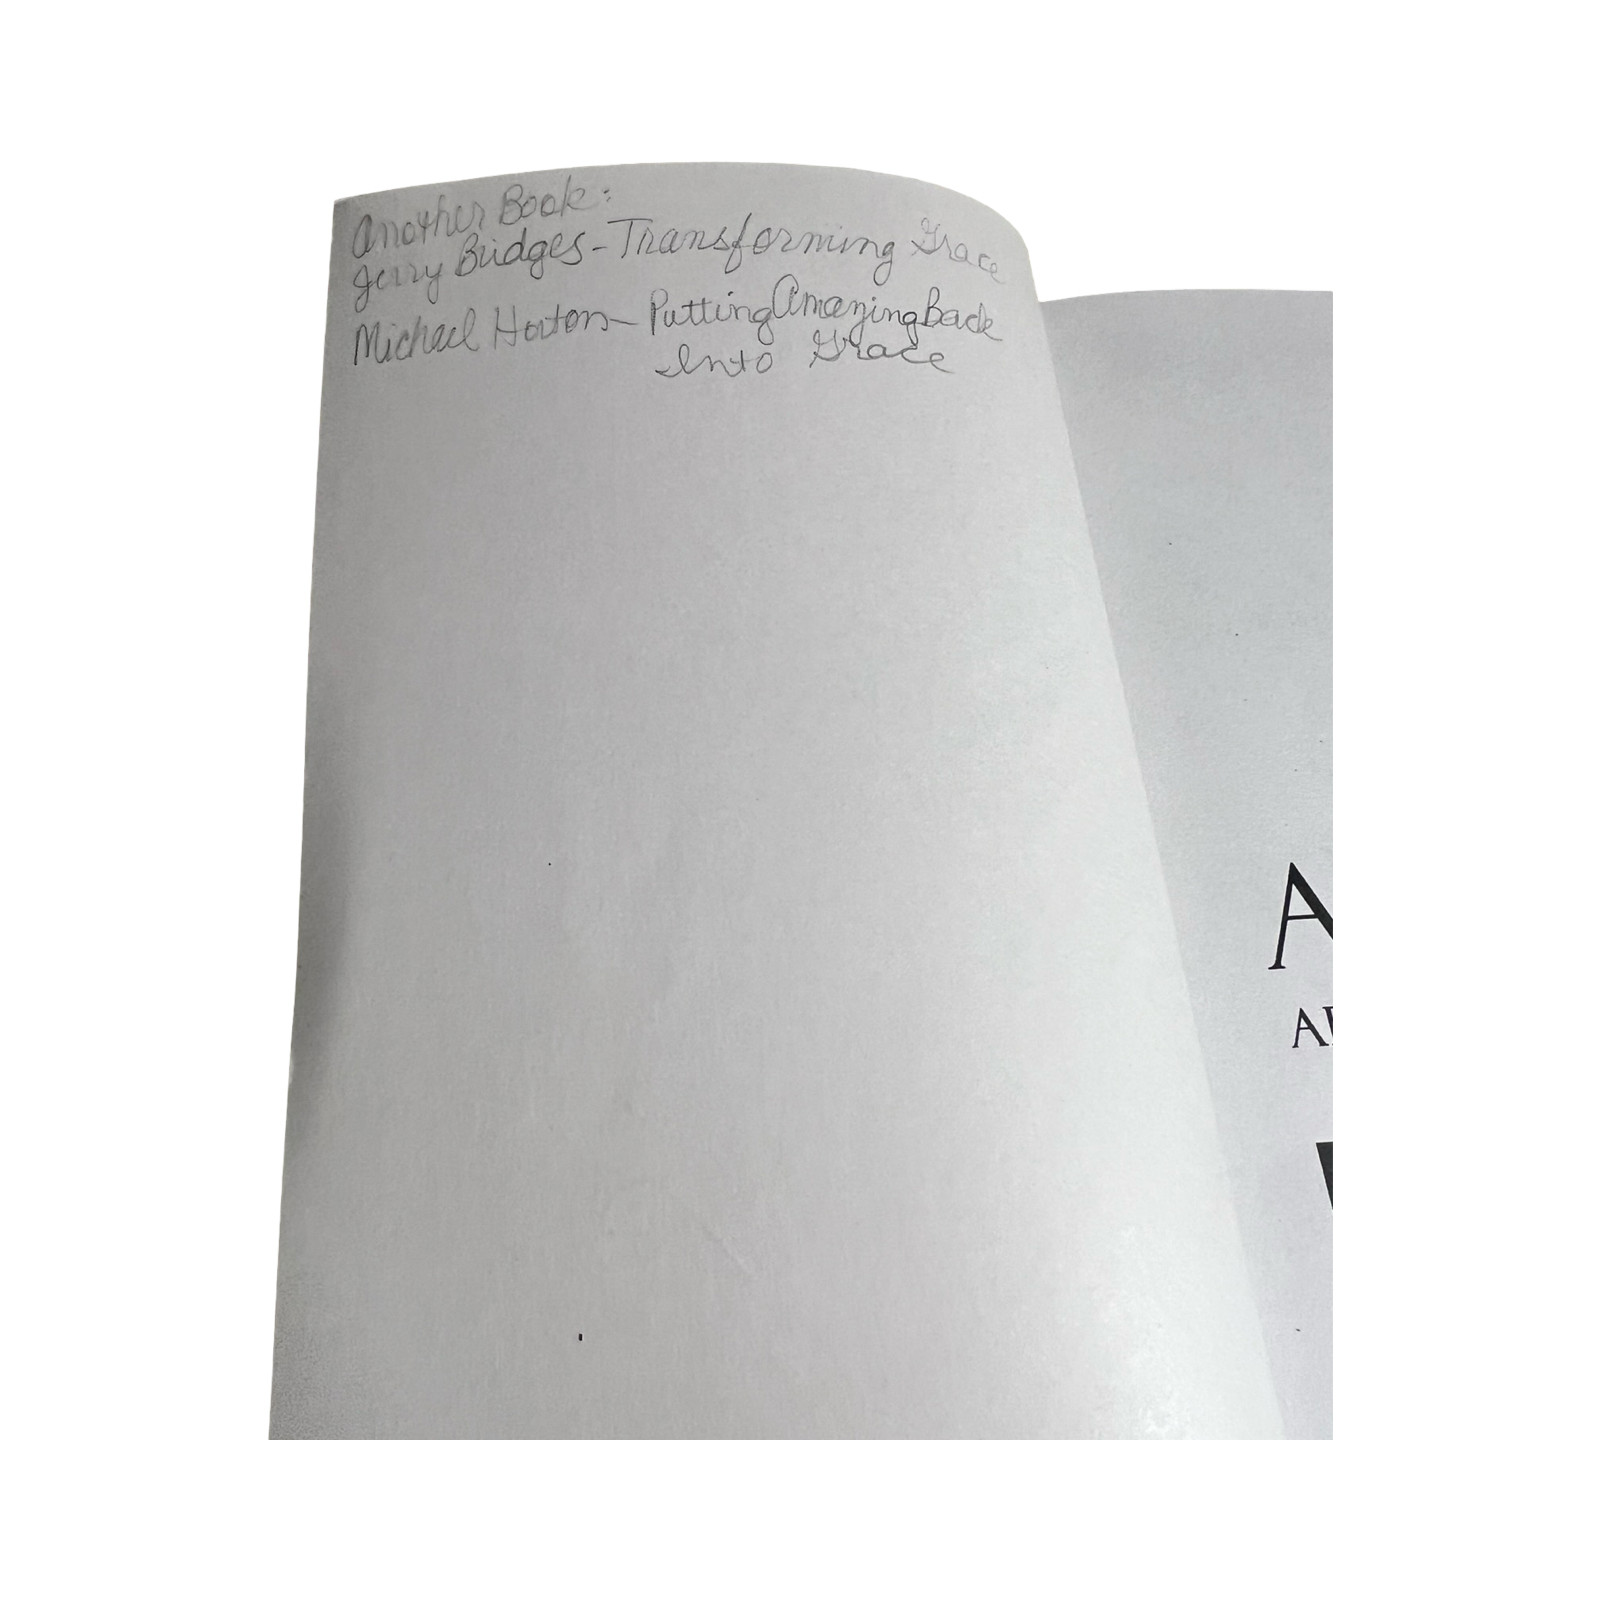 Another Book:
Jerry Bridges - Transforming Grace
Michael Horton - Putting Amazing Back
Into Grace
A